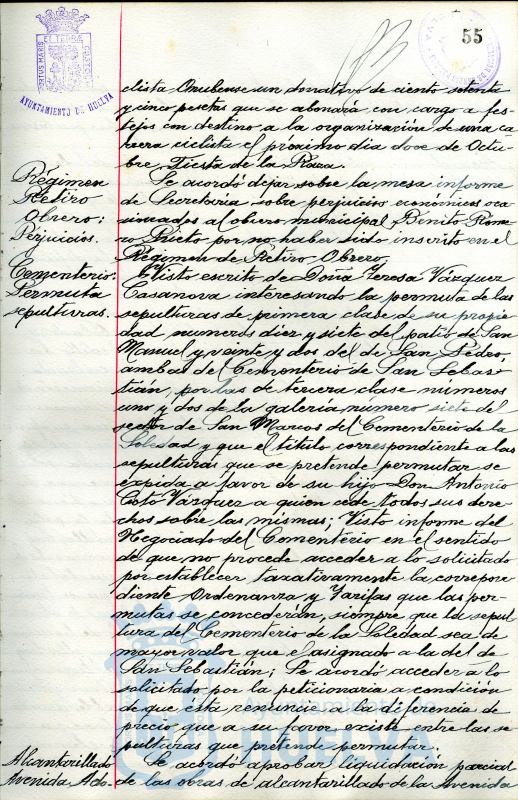 55
AYUNTAMIENTO DE HUELVA
clista Onubense un donativo de ciento setenta
y cinco pesetas que se abonará con cargo a fes-
tejos con destino a la organización de una ca-
rrera ciclista el proximo día doce de Octu-
bre Fiesta de la Raza.
Régimen
Retiro
Obrero:
Perjuicios.
Se acordó dejar sobre la mesa informe
de Secretaria sobre perjuicios económicos oca-
sionados al obrero municipal Benito Rome-
ro Prieto por no haber sido inscrito en el
Régimen de Retiro Obrero.
Cementerio:
Permuta
sepulturas.
Visto escrito de Doña Teresa Vázquez
Casanova interesando la permuta de las
sepulturas de primera clase de su propie-
dad, numeros diez y siete del patio de San
Manuel y veinte y dos del de San Pedro,
ambas del Cementerio de San Sebas-
tián, por las de tercera clase números
uno y dos de la galería número siete del
sector de San Marcos del Cementerio de la
Soledad y que el titulo correspondiente a las
sepulturas que se pretende permutar se
expida a favor de su hijo Don Antonio
Coto Vázquez a quien cede todos sus dere-
chos sobre las mismas; Visto informe del
Negociado del Cementerio en el sentido
de que no procede acceder a lo solicitado
por establecer taxativamente la correspon-
diente Ordenanza y Tarifas que las per-
mutas se concederán, siempre que la sepul-
tura del Cementerio de la Soledad sea de
mayor valor que el asignado a la del de
San Sebastián; Se acordó acceder a lo
solicitado por la peticionaria a condición
de que esta renuncie a la diferencia de
precio que a su favor existe entre las se-
pulturas que pretende permutar.
Alcantarillado
Avenida Ado-
Se acordó aprobar liquidación parcial
de las obras de alcantarillado de la Avenida